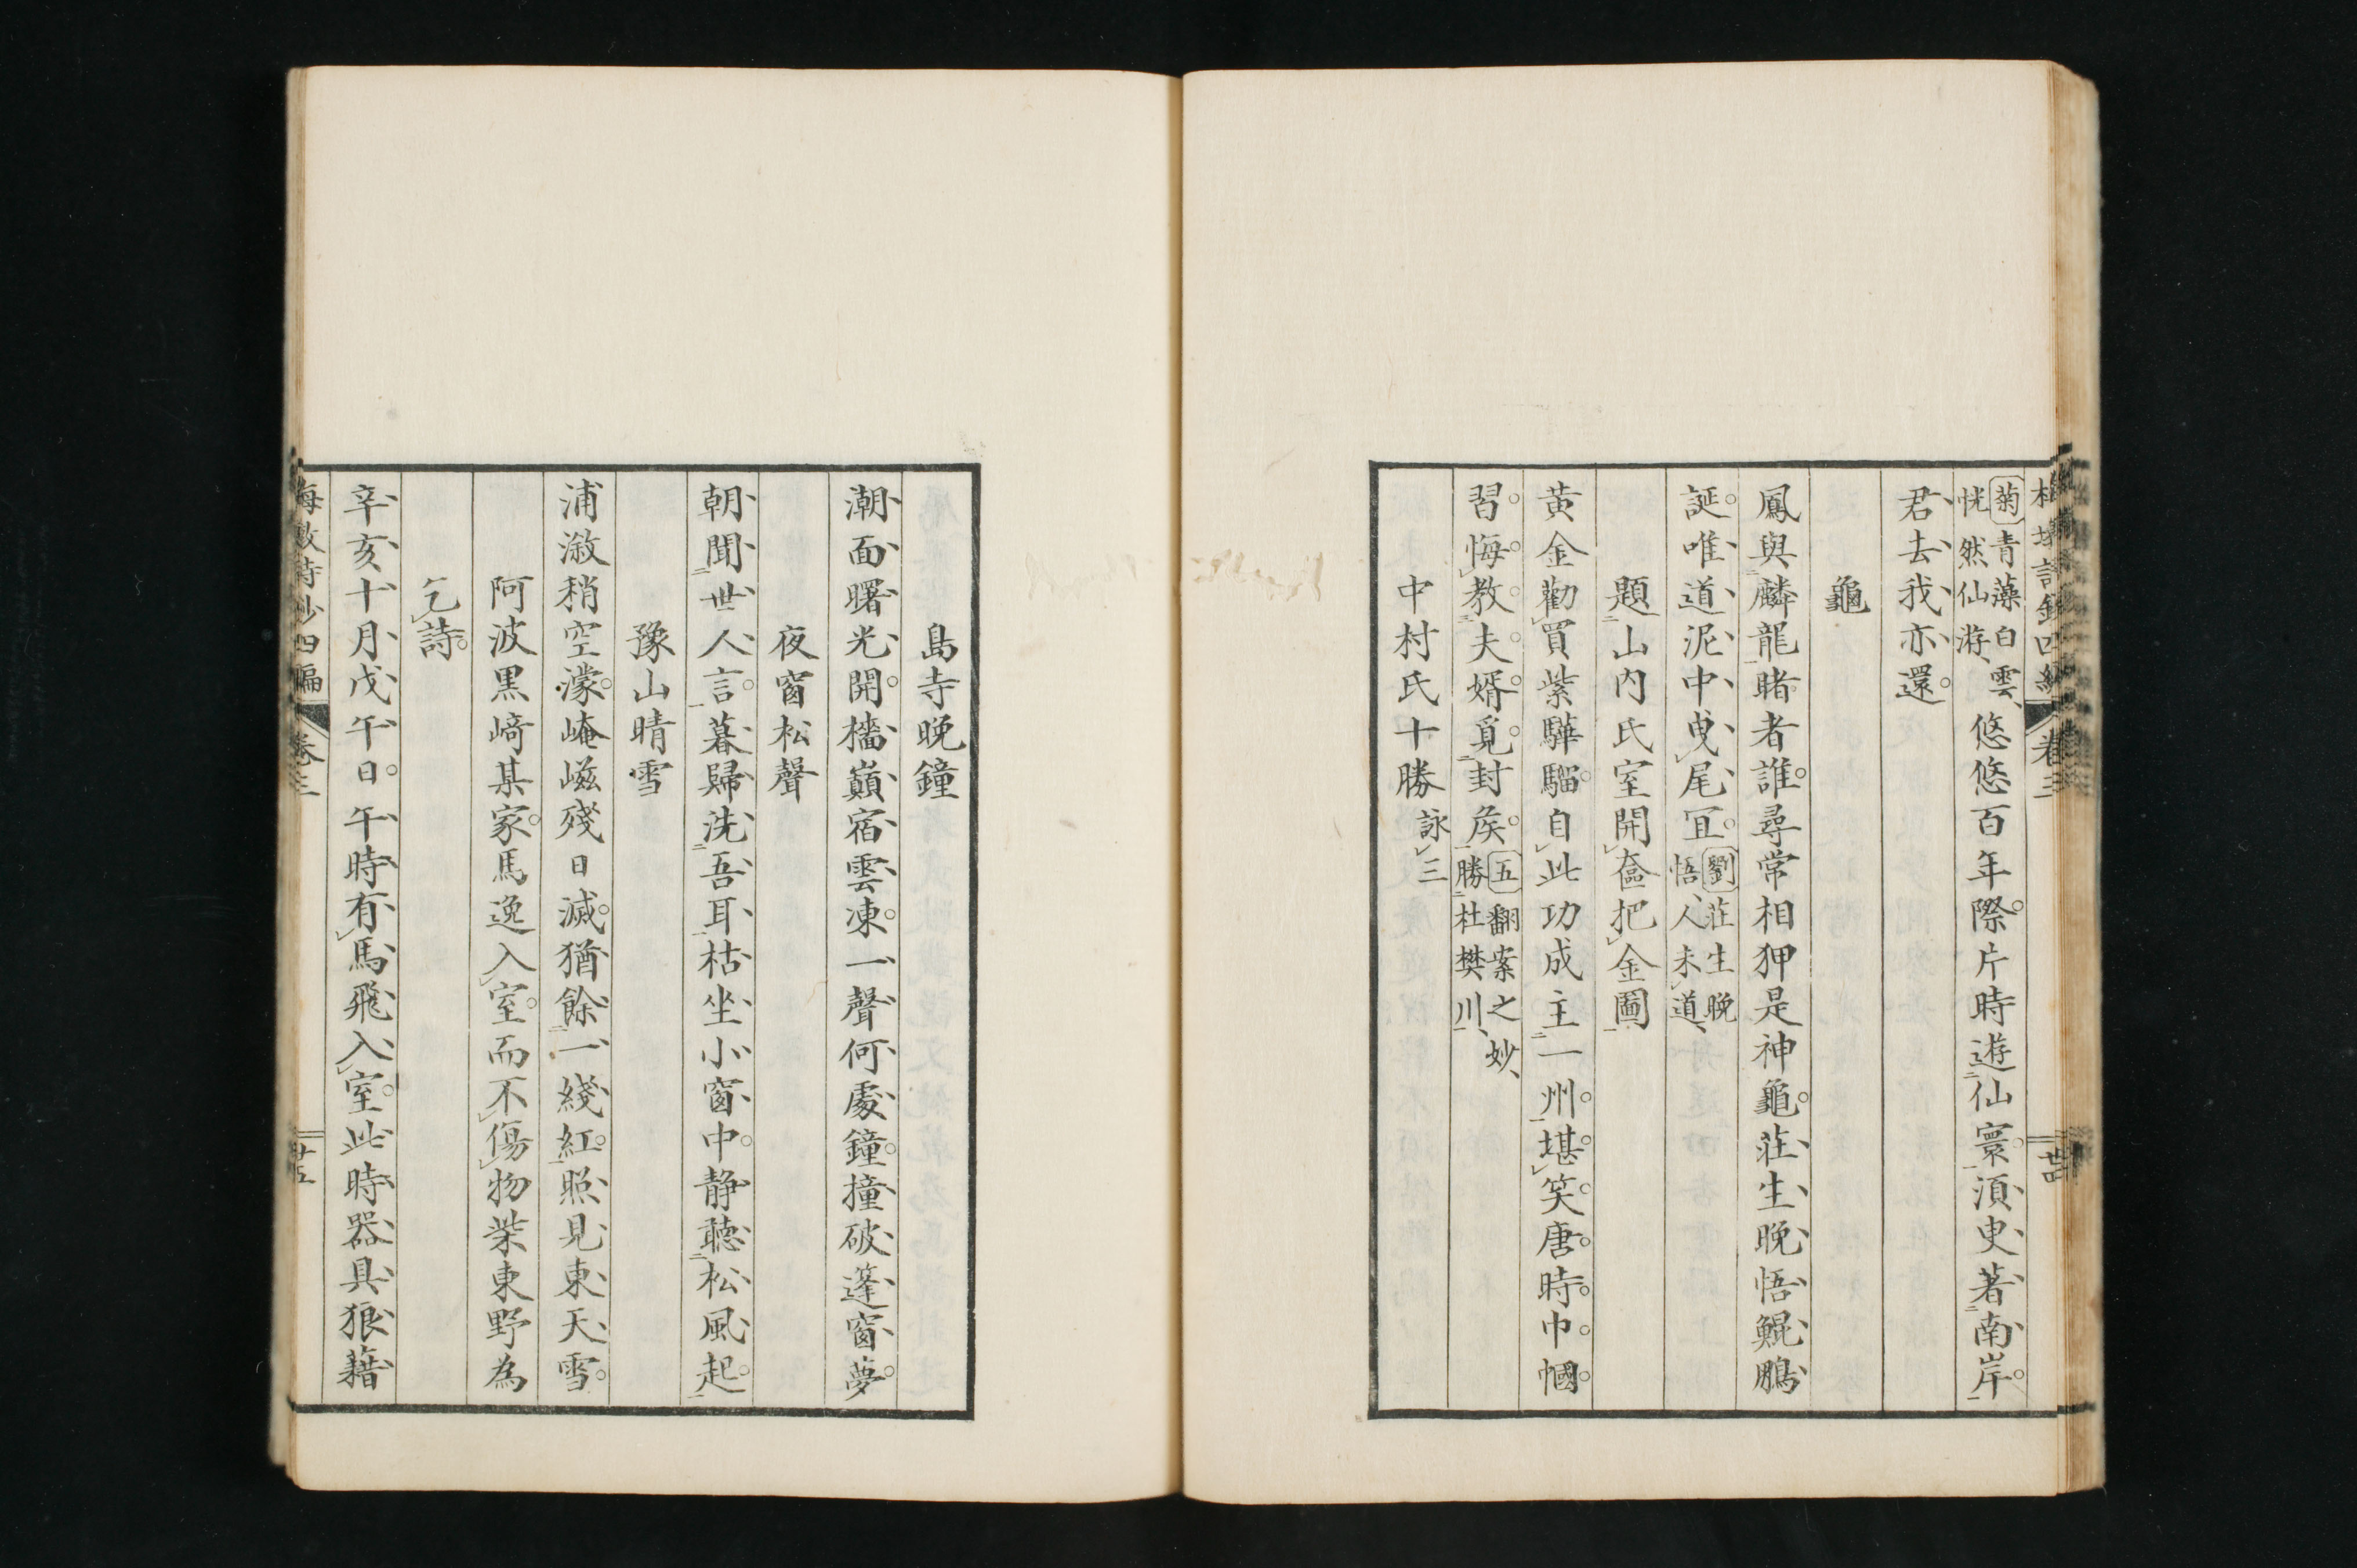 菊青藻白雲恍然仙游悠悠百年際片時遊仙寰須臾著南岸
君去我亦還
龜
鳳與麟龍賭者誰尋常相狎是神龜莊生晚悟鯤鵬
誕唯道泥中曳尾宜劉莊生晚悟人未道
題山内氏室開奩把金圖
黄金勸買紫驊騮自此功成主一州堪笑唐時巾幗
習悔教夫婿覓封矦五翻案之妙勝杜樊川
中村氏十勝詠三
卷三
廿四
島寺晚鐘
潮面曙光開檣巔宿雲凍一聲何處鐘撞破篷窗夢
夜窗松聲
朝聞世人言暮歸洗吾耳枯坐小窗中静聽松風起
豫山晴雪
浦溆稍空濛崦嵫殘日滅猶餘一綫紅照見東天雪
阿波黒﨑某家馬逸入室而不傷物柴東野為
乞詩
辛亥十月戊午日午時有馬飛入室此時器具狼藉
梅墩詩鈔四編
卷三
廿五